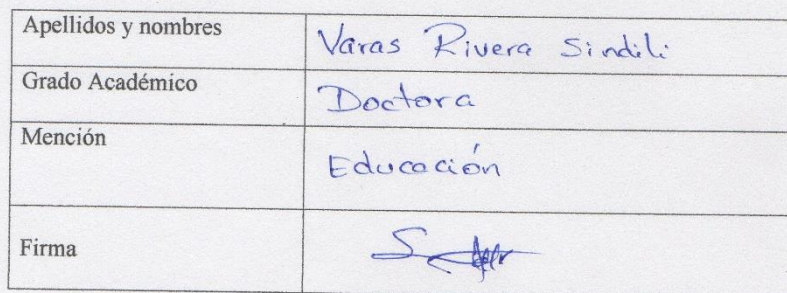 Apellidos y nombres Varas Rivera Sindili
Grado Académico Doctora
Mención Educación
Firma